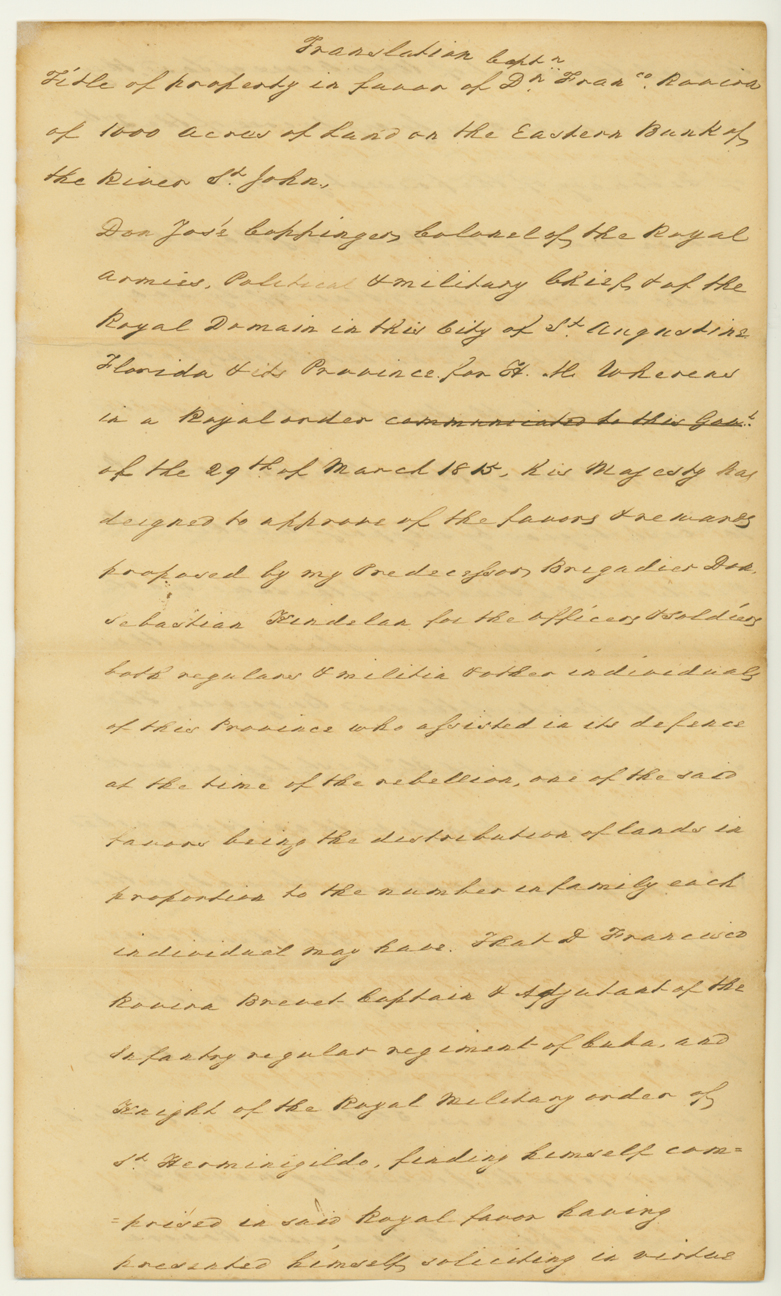 Translation
Captn
Title of property in favor of Dn. Franco. Rovira
of 1000 acres of Land on the Eastern Bank of
the River St. John,
Don José Coppinger, Colonel of the Royal
armies, Political & military Chief, & of the
Royal Domain in this City of St. Augustine
Florida & its Province for H. M. Whereas
in a Royal order communicated to this Govt.
of the 29th of March 1815, his Majesty has
deigned to approve of the favors & rewards
proposed by my Predecessor, Brigadier Don
Sebastian Kindelan for the officers & soldiers
both regulars & militia & other individuals
of this Province who assisted in its defence
at the time of the rebellion, one of the said
favors being the distribution of lands in
proportion to the number in family each
individual may have. That D Francisco
Rovira Brevet Captain & Adjutant of the
Infantry regular regiment of Cuba, and
Knight of the Royal Military order of
St Herminigildo, finding himself com=
=prised in said Royal favor having
presented himself, soliciting in virtue